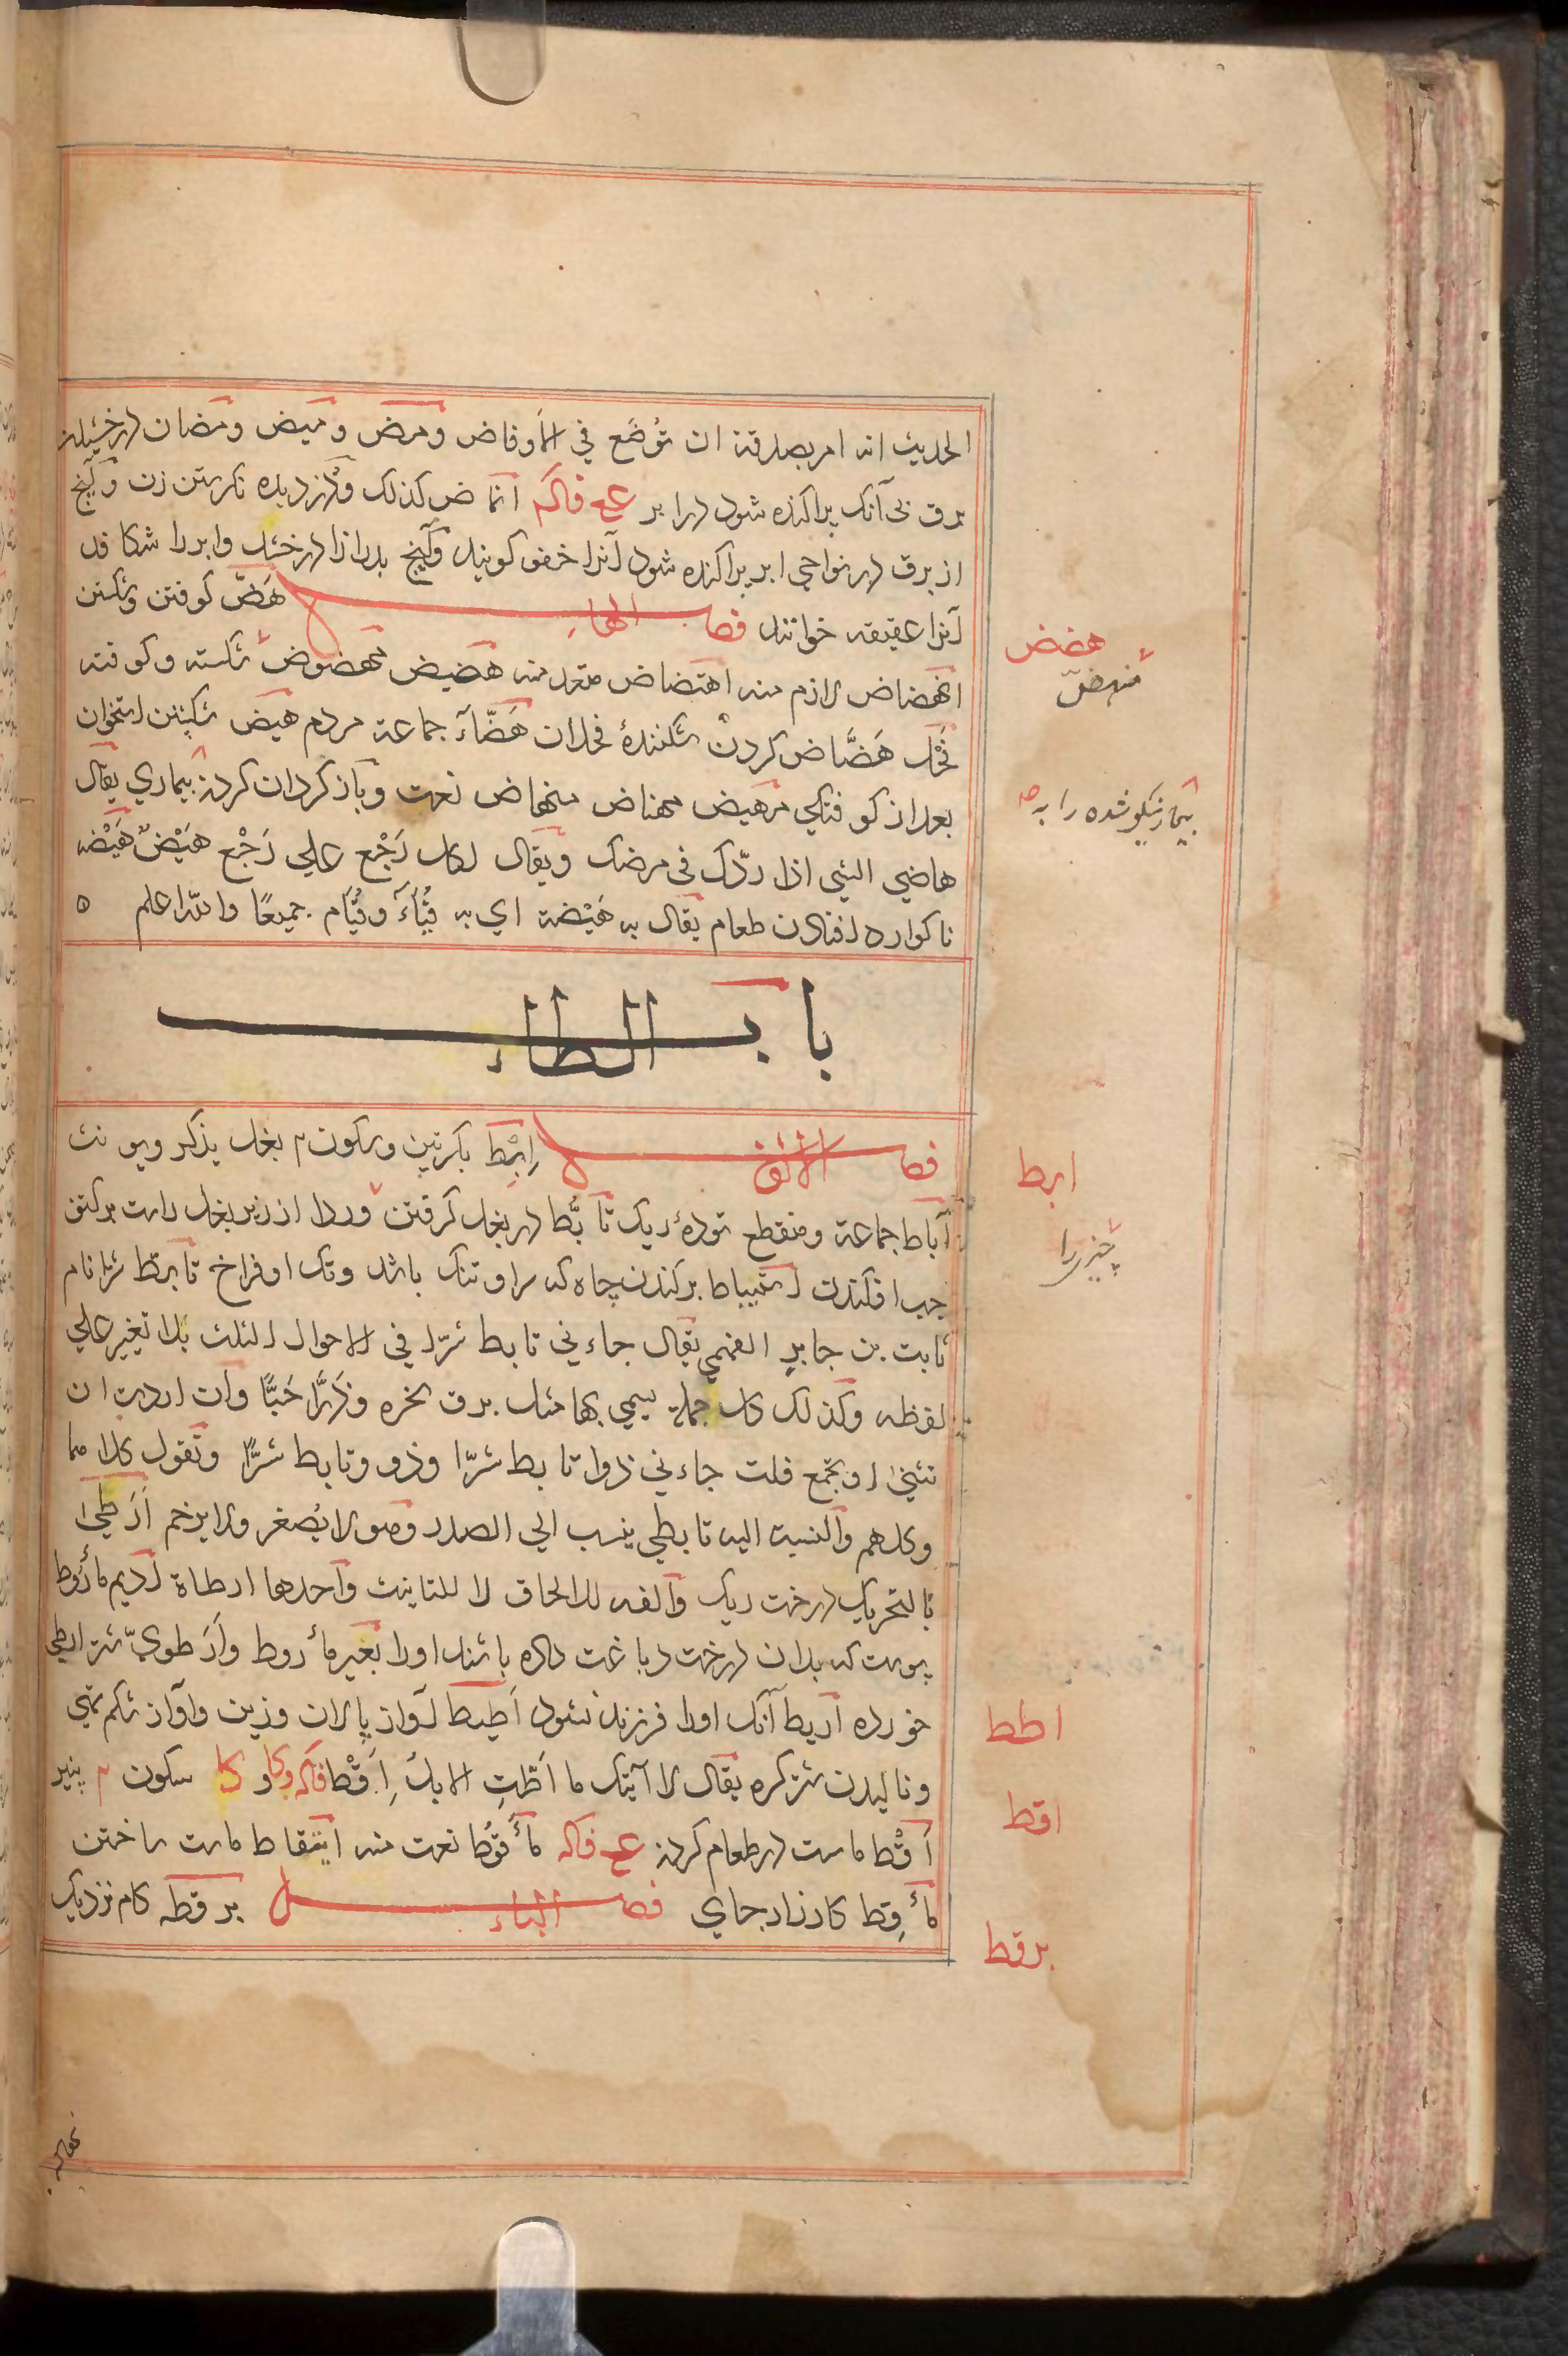 الحدیث انه امر بصدقة ان تُوضَع في الاَوفاض ومض ومیض ومضان درخشیدن
برق بی آنک پراکنده شود در ابر عج فاکه انماض کذلک و دزدیده نکریستن زن وآنچ
از برق در نواحی ابر پراکنده شود آنرا خفو کویند وآنچ بدرازا درخشد وابر را شکافد
آنرا عقیقه خوانند فصل الهاء هَضّ کوفتن وشکستن
هضض
انهضاض لازم منه اهتضاض متعد منه هضیض مهضوض شکسته وکوفته
منهضّ
فَحْل هَضَّاض کردن شکننده فحلان هَضَّآء جماعة مردم هیض شکستن استخوان
بعد از کوفتکی مهیض مهناض منهاض نعت وباز کردان کردن بیماری یقال
بیمار نیکو شده را به
هاضي الشي اذا ردّک في مرضک ویقال لکل وَجْع علی وَجْع هَیْضٌ هَیْضه
ناکوارده افتادن طعام یقال به هَیْضة اي به قُیَّاءٌ وقُیَّام جمیعًا والله اعلم ٥
باب الطاء
فصل الالف اِبْط بکسرتین وسکون م بغل یذکر ویونث
ابط
آباط جماعة ومنقطع تودهٔ ریک تابُّط در بغل کرفتن وردا از زیر بغل راست برکتف
چیزی را
چپ افکندن استیباط برکندن چاه که سر او تنک باشد وتک او فراخ تابط شرا نام
ثابت بن جابر الفهمي یقال جاءني تابط شرّا في الاحوال الثلث بلا تغیر علی
لفظه وکذلک کل جملة یسمی بها مثل برق نحره وذَرَّا حَبًّا وان اردت ان
تثنی او تجمع قلت جاءني ذوا تابط شرّا وذوو تابط شرًّا وتقول کلاهما
وکلهم والنسبة الیه تابطي ینسب الی الصدر وهو لا یُصغر ولا یرخم اَرطیٰ
بالتحریک درخت ریک والفه للالحاق لا للتانیث واحدها ارطاة ادیم ماْرُوط
پوست که بدان درخت دباغت داده باشند اورا بعیر ماْروط واَرطويّ شتر ارطی
خورده اریط آنک اورا فرزند نشود اَطیط آواز پالان وزین وآواز شکم تهی
اطط
ونالیدن شتر کره یقال لا آتیک ما اَطّتِ الابل اِقْط فاکه وکا و کا سکون م پنیر
اقط
اَقْط ماست در طعام کردن عج فاکه ماْقوُط نعت منه ایتقاط ماست ساختن
ماْقِط کارزار جای فصل الباء برقطه کام نزدیک
برقط